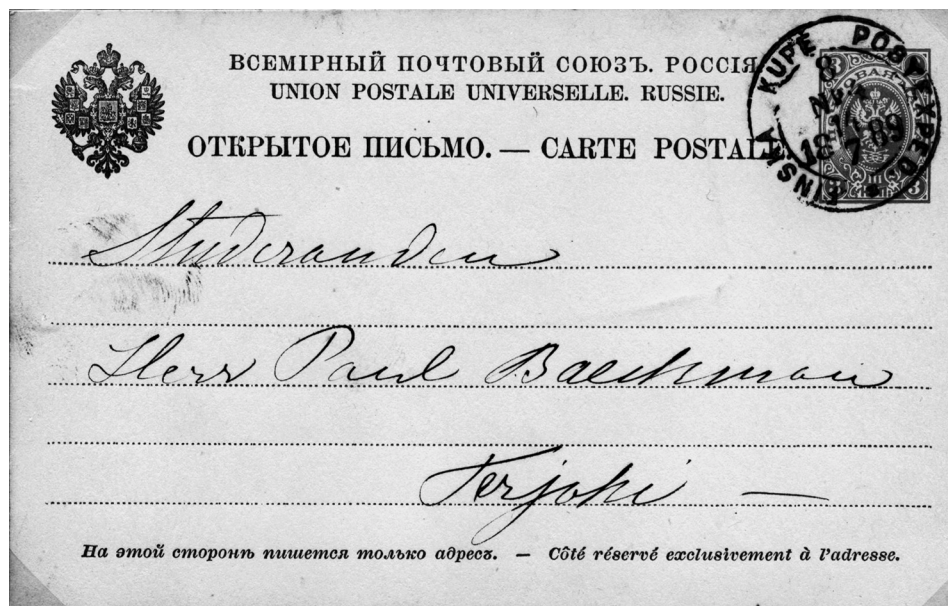 ВСЕМІРНЫЙ ПОЧТОВЫЙ СОЮЗЪ. РОССІЯ
UNION POSTALE UNIVERSELLE. RUSSIE.
ОТКРЫТОЕ ПИСЬМО. — CARTE POSTALE.
KUPÉ POST. EXPED.
18 7 89
3 3
Studeranden
Herr Paul Baeckman
Terjoki —
На этой сторонѣ пишется только адресъ. — Côté réservé exclusivement à l'adresse.